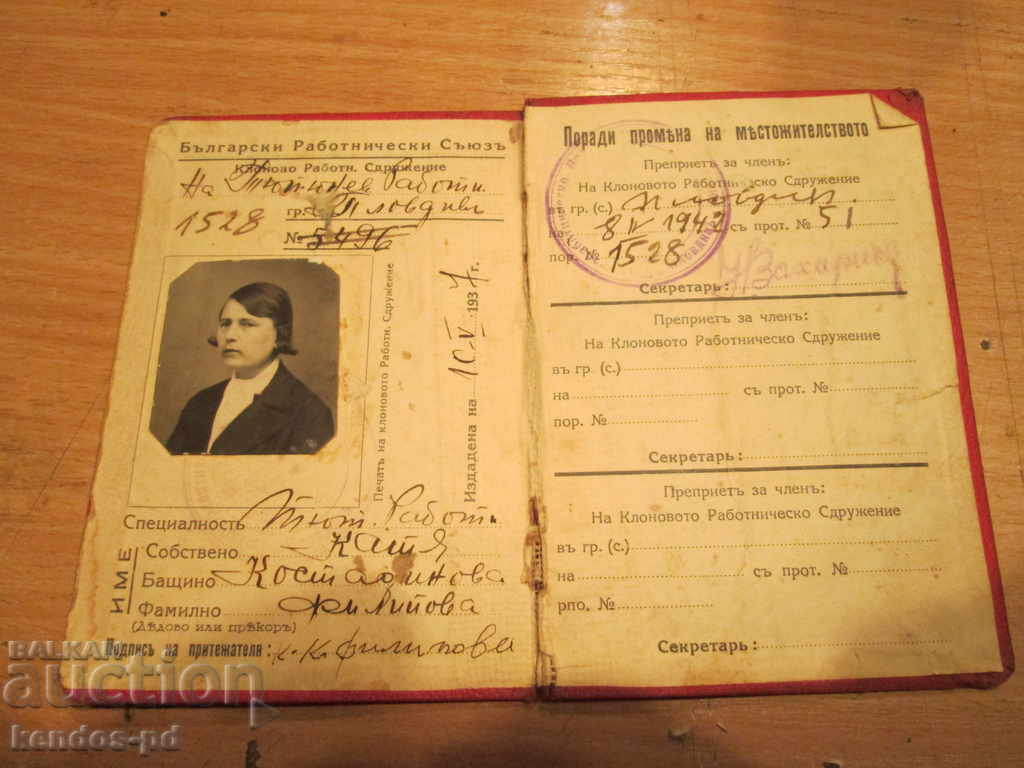 Български Работнически Съюзъ
Клоново Работн. Сдружение
На Тютюнев Работн.
гр. Пловдивъ
1528
№ 5496
Печатъ на клоновото Работн. Сдружение
Издадена на 10-V-1937 г.
Специалность Тют. Работн.
ИМЕ
Собствено Катя
Бащино Костадинова
Фамилно Филипова
(Дѣдово или прѣкоръ)
Подпись на притежателя: К. К. Филипова
Поради промѣна на мѣстожителството
Преприетъ за членъ:
На Клоновото Работническо Сдружение
въ гр. (с.) Пловдивъ
на 8 IV 1942 съ прот. № 51
пор. № 1528
Секретарь:
Преприетъ за членъ:
На Клоновото Работническо Сдружение
въ гр. (с.)
на съ прот. №
пор. №
Секретарь:
Преприетъ за членъ:
На Клоновото Работническо Сдружение
въ гр. (с.)
на съ прот. №
рпо. №
Секретарь:
BALKAN
auction
kendos-pd